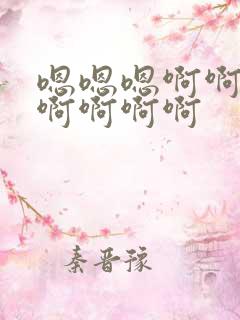 嗯嗯嗯啊啊
啊啊啊啊
秦晋豫